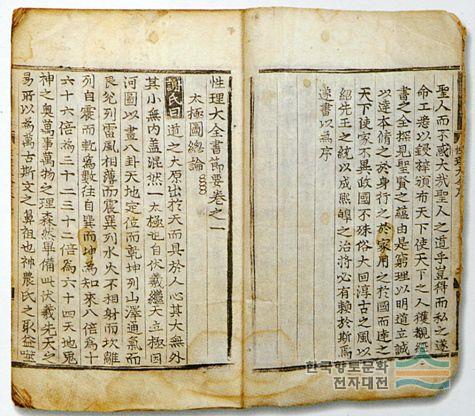 聖人而不惑大哉聖人之道乎豈得而私之遂
命工悉以鋟梓頒布天下使天下之人獲觀經
書之全探見聖賢之蘊由是窮理以明道立誠
以達本脩之於身行之於家用之於國而達之
天下使家不異政國不殊俗大回淳古之風以
紹先王之統以成熙皞之治將必有賴於斯焉
遂書以為序
性理大全書節要卷之一
太極圖總論
謝氏曰 道之大原出於天而具於人心其大無外
其小無內蓋混然一太極也自伏羲繼天立極因
河圖以畫八卦天地定位而乾坤列山澤通氣而
艮兌列雷風相薄而震巽列水火不相射而坎離
列自震而乾為數往自巽而坤為知來八倍為十
六十六倍為三十二三十二倍為六十四天地鬼
神之奧萬事萬物之理森然畢備此伏羲先天之
易所以為萬古斯文之鼻祖也神農氏之取益噬
한국향토문화
전자대전